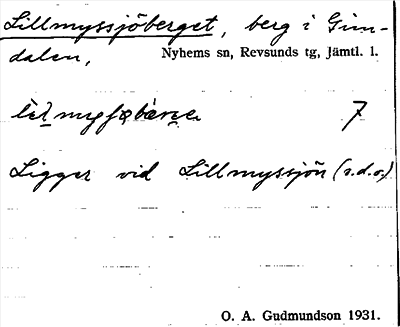 Lillmyssjöberget, berg i Gim-
dalen, Nyhems sn, Revsunds tg, Jämtl. l.
7
Ligger vid Lillmyssjön (s.d.o.)
O. A. Gudmundson 1931.